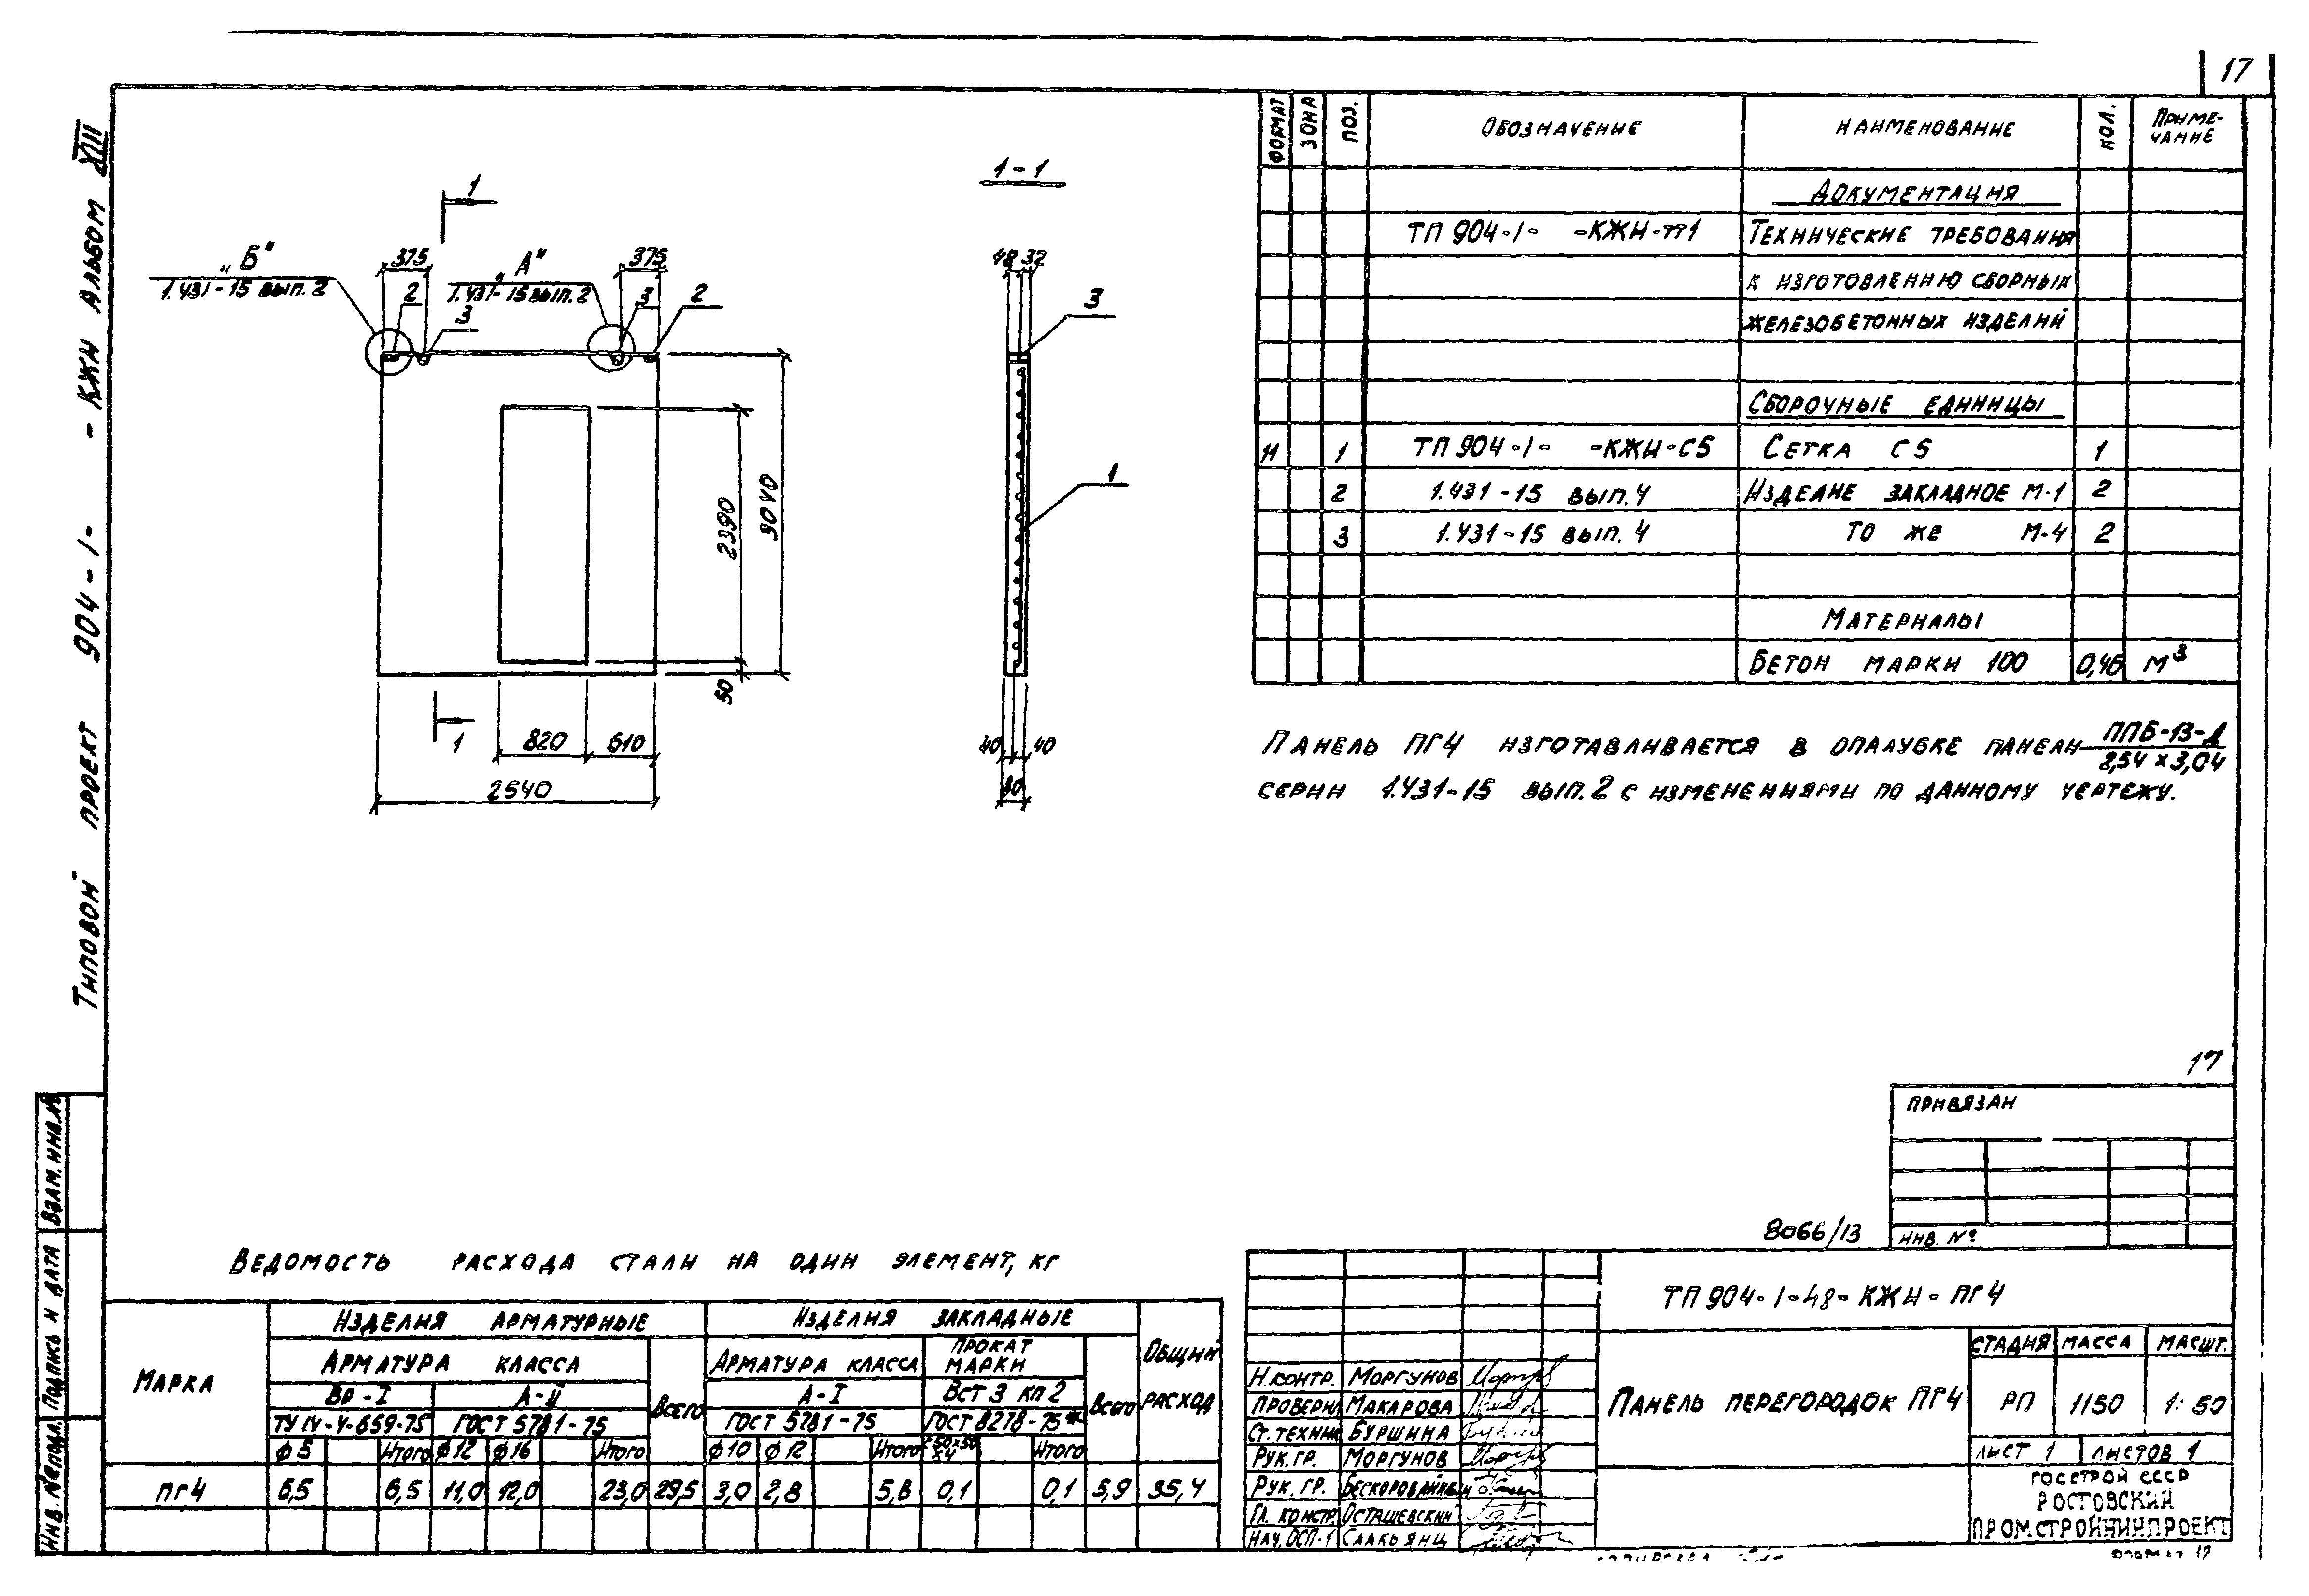 17
Типовой проект 904-1- -КЖИ Альбом XIII
1
1-1
„Б"
1.431-15 вып. 2
375
2
3
„А"
1.431-15 вып. 2
375
3
2
48 32
3
1
2390
3040
50
1
820
610
2540
40
40
80
Формат
Зона
Поз.
Обозначение
Наименование
Кол.
Приме-
чание
Документация
ТП 904-1- -КЖИ-тт1 Технические требования
к изготовлению сборных
железобетонных изделий
Сборочные единицы
11 1 ТП 904-1- -КЖИ-С5 Сетка С5 1
2 1.431-15 вып. 4 Изделие закладное М-1 2
3 1.431-15 вып. 4 то же М-4 2
Материалы
Бетон марки 100 0,46 м³
Панель ПГ4 изготавливается в опалубке панели ППБ-13-Д
2,54 х 3,04
серии 1.431-15 вып. 2 с изменениями по данному чертежу.
17
Привязан
Инв. №
8066/13
Взам. инв. №
Подпись и дата
Инв. № подл.
Ведомость расхода стали на один элемент, кг
Марка
Изделия арматурные
Изделия закладные
Общий
расход
Арматура класса
Всего
Арматура класса
Прокат
марки
Всего
Вр-I
А-II
А-I
Вст 3 кп 2
ТУ 14-4-659-75
ГОСТ 5781-75
ГОСТ 5781-75
ГОСТ 8278-75*
ф5 Итого ф12 ф16 Итого ф10 ф12 Итого 50х50
х4 Итого
ПГ4 6,5 6,5 11,0 12,0 23,0 29,5 3,0 2,8 5,8 0,1 0,1 5,9 35,4
ТП 904-1-48-КЖИ-ПГ4
Панель перегородок ПГ4
Стадия Масса Масшт.
РП 1150 1:50
Лист 1 Листов 1
Госстрой СССР
Ростовский
Промстройниипроект
Н.контр. Моргунов
Проверил Макарова
Ст.техник Буршина
Рук. гр. Моргунов
Рук. гр. Бескоровайный
Гл. констр. Осташевский
Нач. ОСП-1 Саакьянц
Формат 12